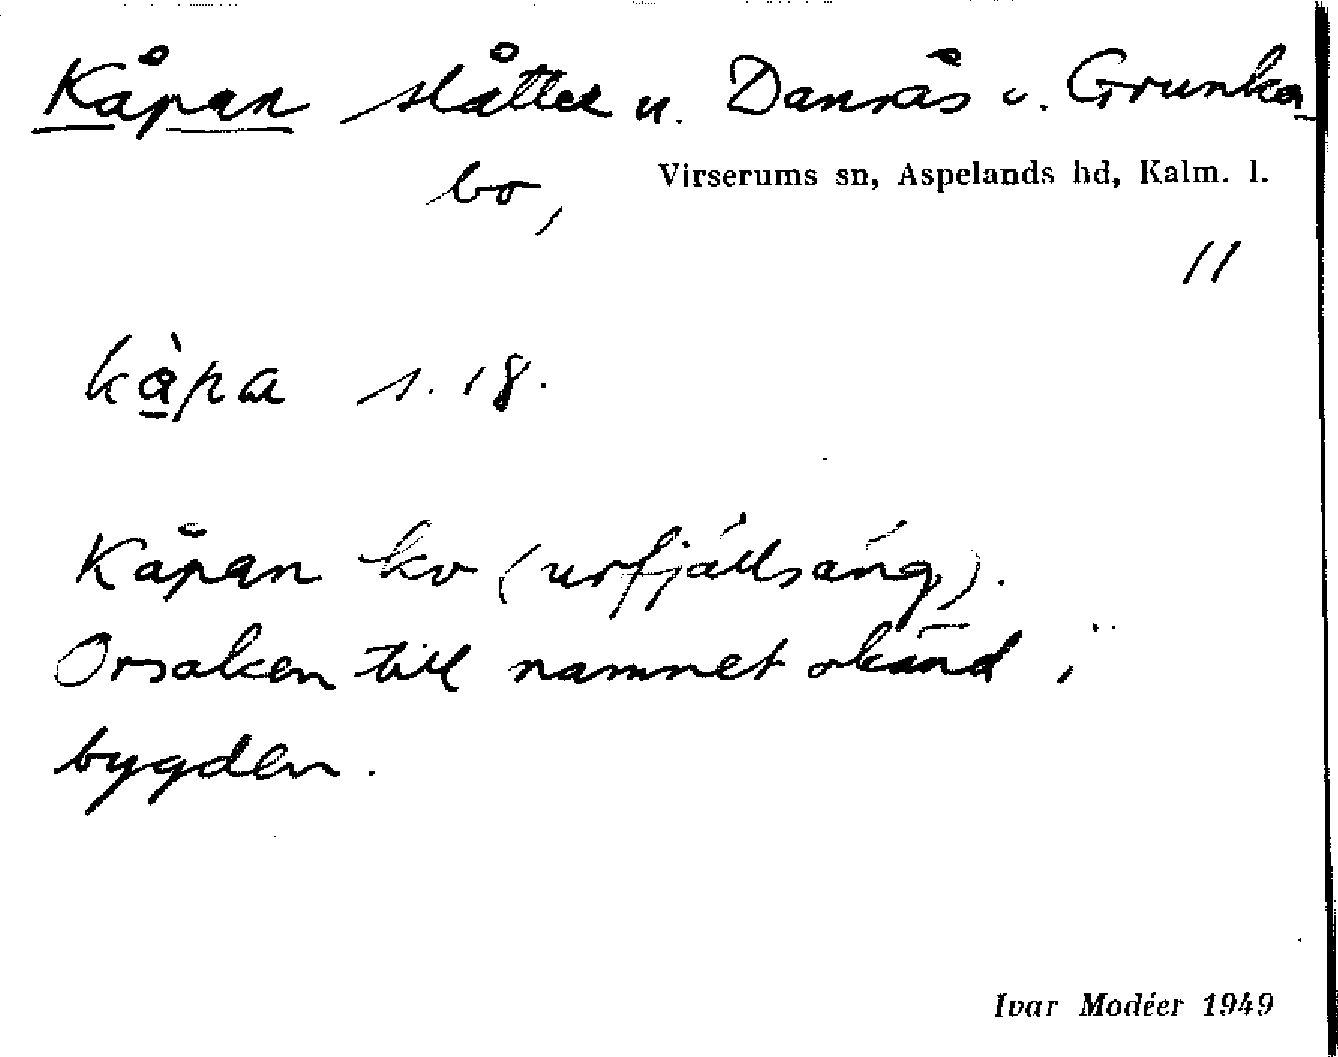 Kåpan slåtter u. Danrås o. Grunka-
bo,
Virserums sn, Aspelands hd, Kalm. l.
11
kàpa s. 18.
Kåpan kv (urfjällsäng).
Orsaken till namnet okänd i
bygden.
Ivar Modéer 1949